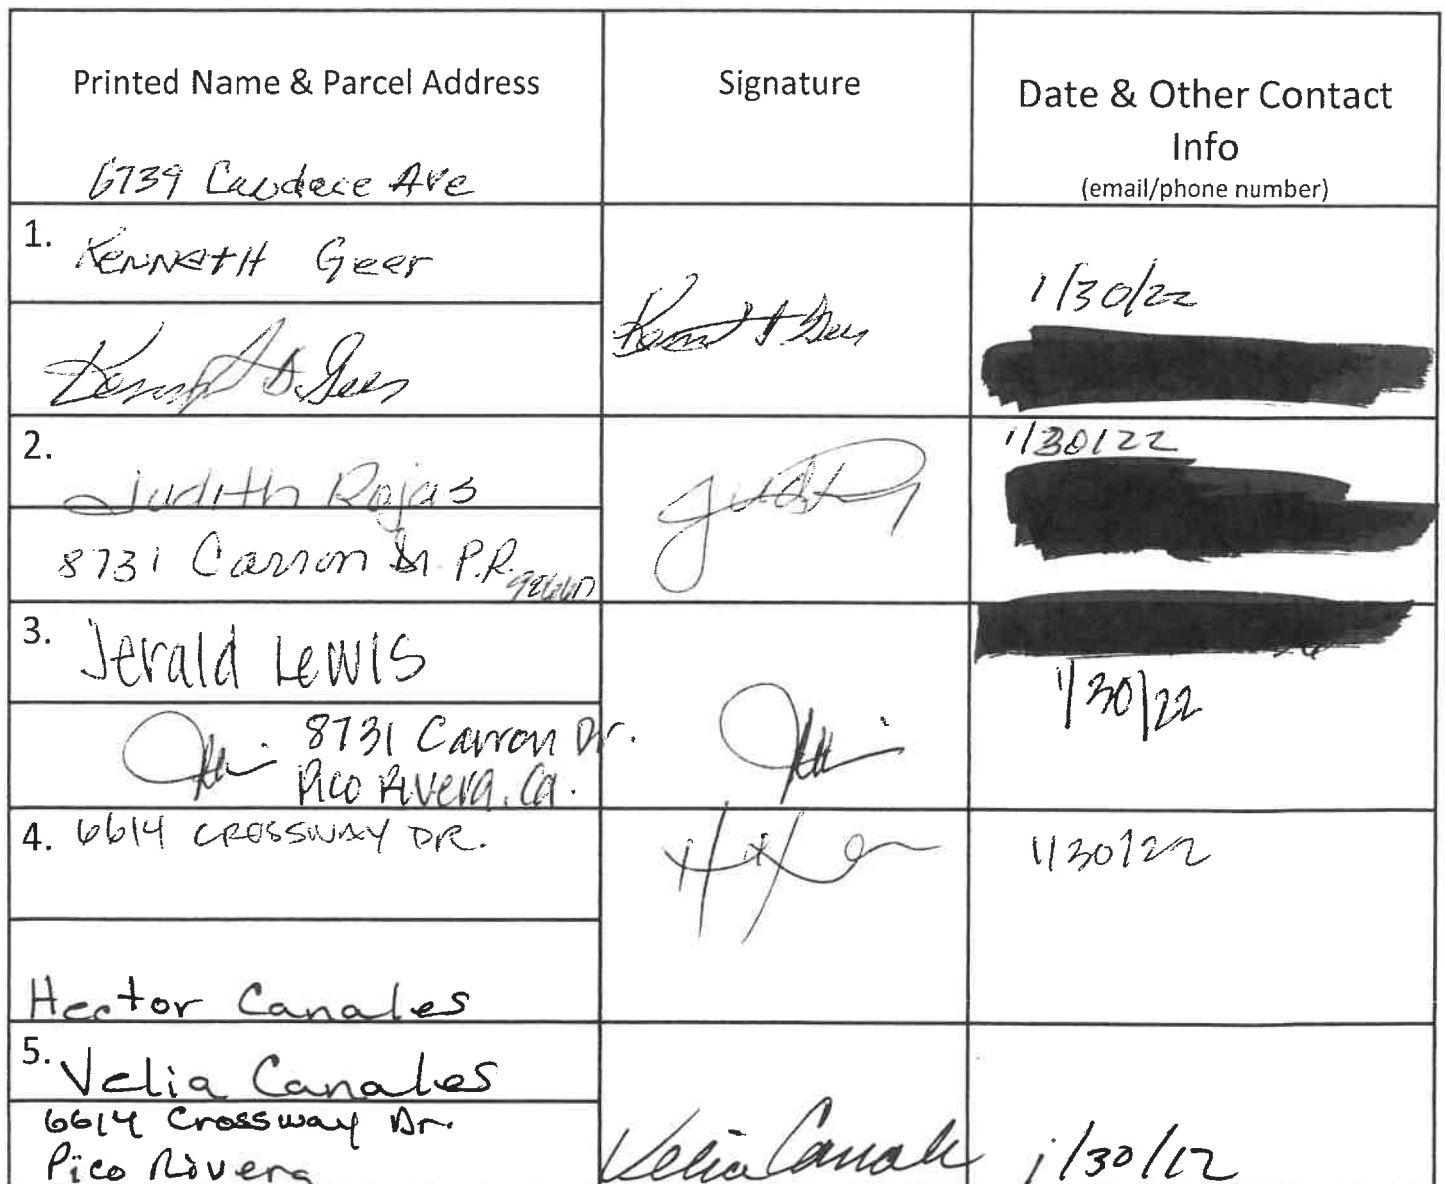 Printed Name & Parcel Address
Signature
Date & Other Contact
Info
(email/phone number)
6739 Candace Ave
1. Kenneth Geer
1/30/22
2. Judith Rojas
1/30/22
8731 Carron Dr. P.R. 90660
3. Jerald Lewis
8731 Carron Dr.
Pico Rivera, Ca.
1/30/22
4. 6614 CROSSWAY DR.
1/30/22
Hector Canales
5. Velia Canales
6614 Crossway Dr.
Pico Rivera
Velia Canale
1/30/12